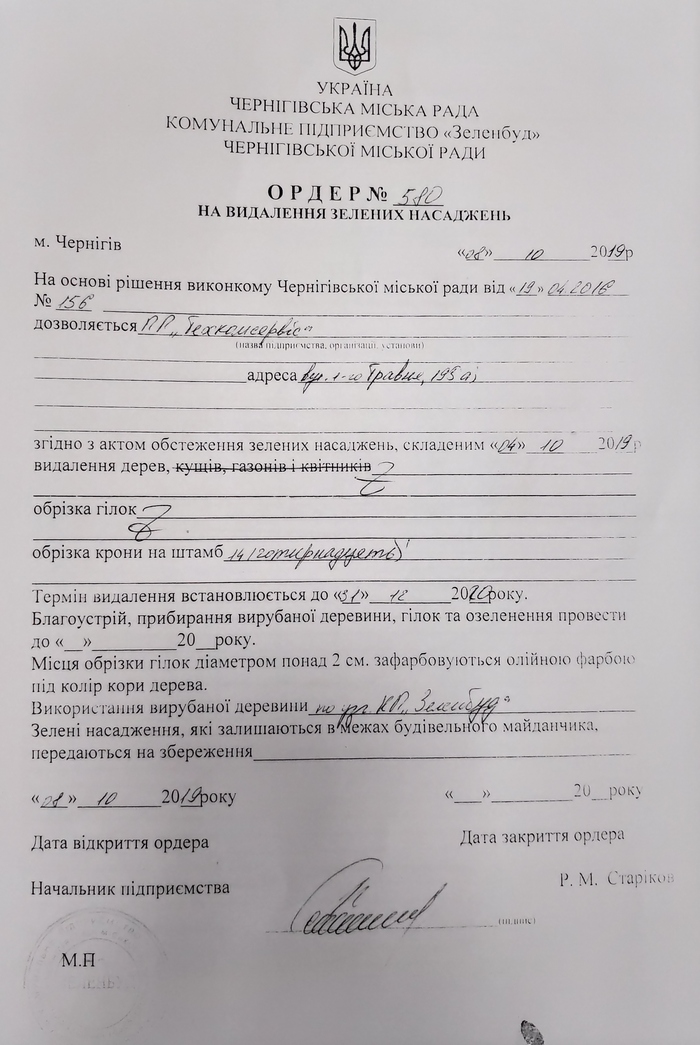 УКРАЇНА
ЧЕРНІГІВСЬКА МІСЬКА РАДА
КОМУНАЛЬНЕ ПІДПРИЄМСТВО «Зеленбуд»
ЧЕРНІГІВСЬКОЇ МІСЬКОЇ РАДИ
О Р Д Е Р № 580
НА ВИДАЛЕННЯ ЗЕЛЕНИХ НАСАДЖЕНЬ
м. Чернігів «08» 10 2019р
На основі рішення виконкому Чернігівської міської ради від «19» 04.2016
№ 156
дозволяється ПП „Техкомсервіс“
(назва підприємства, організації, установи)
адреса вул. 1-го Травня, 193 а;
згідно з актом обстеження зелених насаджень, складеним «04» 10 2019р
видалення дерев, кущів, газонів і квітників
обрізка гілок
обрізка крони на штамб 14 (чотирнадцять)
Термін видалення встановлюється до «31» 12 2020року.
Благоустрій, прибирання вирубаної деревини, гілок та озеленення провести
до «__»_________20__року.
Місця обрізки гілок діаметром понад 2 см. зафарбовуються олійною фарбою
під колір кори дерева.
Використання вирубаної деревини по уг. КП „Зеленбуд“
Зелені насадження, які залишаються в межах будівельного майданчика,
передаються на збереження
«08» 10 2019року «___»_________20__року
Дата відкриття ордера Дата закриття ордера
Начальник підприємства Р. М. Старіков
(підпис)
М.П